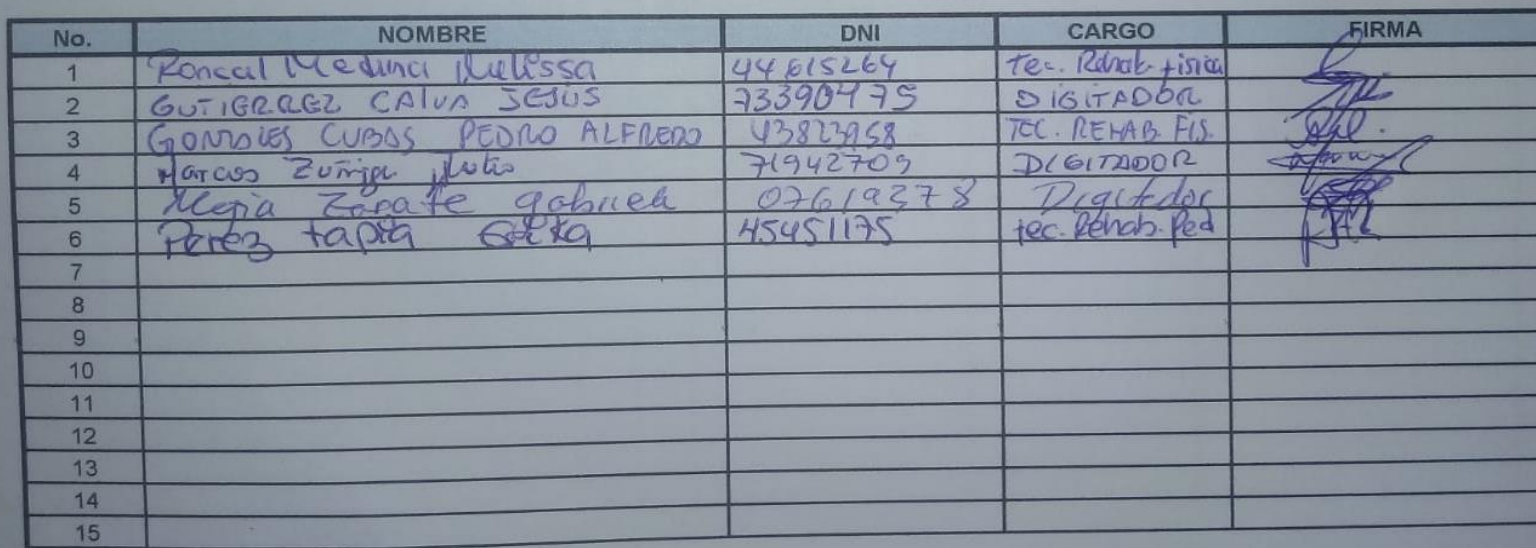 No. NOMBRE DNI CARGO FIRMA
1 Roncal Medina Melissa 44615264 Tec. Rehab. fisica
2 GUTIERREZ CALVA JESUS 73390475 DIGITADOR
3 GONZALES CUBAS PEDRO ALFREDO 43823958 TEC. REHAB. FIS.
4 Marcos Zuñiga Julio 71942709 DIGITADOR
5 Mejia Zarate gabriela 07619378 Digitador
6 Perez tapia 45451175 tec. Rehab. Ped
7
8
9
10
11
12
13
14
15